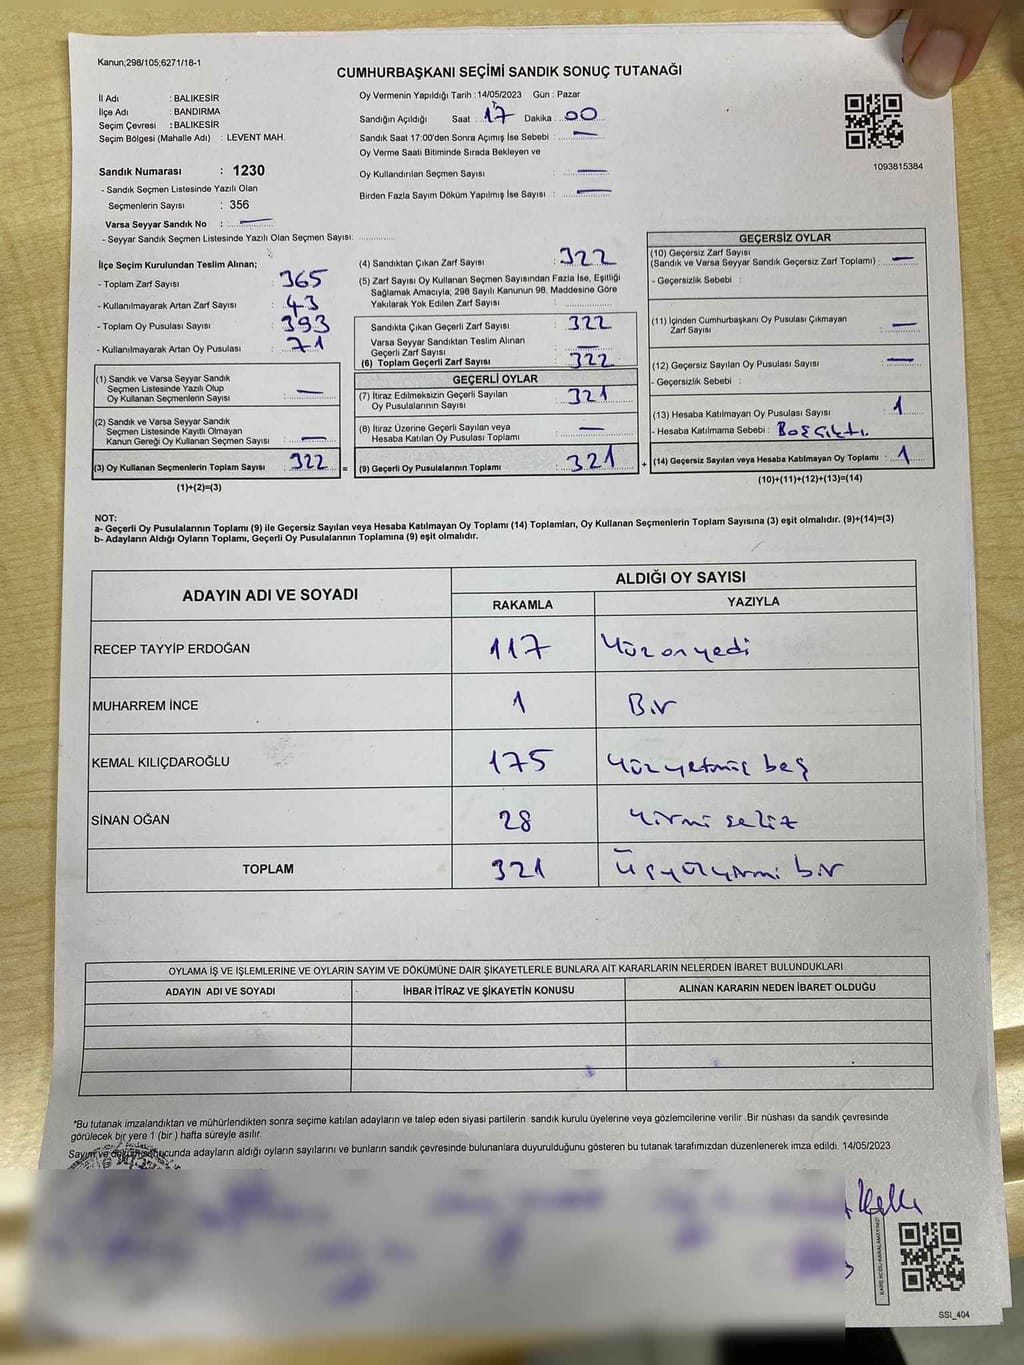 Kanun;298/105;6271/18-1
CUMHURBAŞKANI SEÇİMİ SANDIK SONUÇ TUTANAĞI
İl Adı : BALIKESİR
İlçe Adı : BANDIRMA
Seçim Çevresi : BALIKESİR
Seçim Bölgesi (Mahalle Adı) : LEVENT MAH.
Sandık Numarası : 1230
- Sandık Seçmen Listesinde Yazılı Olan
Seçmenlerin Sayısı : 356
Varsa Seyyar Sandık No : —
- Seyyar Sandık Seçmen Listesinde Yazılı Olan Seçmen Sayısı:
Oy Vermenin Yapıldığı Tarih : 14/05/2023 Gün : Pazar
Sandığın Açıldığı Saat : 17 Dakika : 00
Sandık Saat 17:00'den Sonra Açımış İse Sebebi : —
Oy Verme Saati Bitiminde Sırada Bekleyen ve
Oy Kullandırılan Seçmen Sayısı : —
Birden Fazla Sayım Döküm Yapılmış İse Sayısı : —
1093815384
İlçe Seçim Kurulundan Teslim Alınan;
- Toplam Zarf Sayısı : 365
- Kullanılmayarak Artan Zarf Sayısı : 43
- Toplam Oy Pusulası Sayısı : 393
- Kullanılmayarak Artan Oy Pusulası : 71
(1) Sandık ve Varsa Seyyar Sandık
Seçmen Listesinde Yazılı Olup
Oy Kullanan Seçmenlerin Sayısı : —
(2) Sandık ve Varsa Seyyar Sandık
Seçmen Listesinde Kayıtlı Olmayan
Kanun Gereği Oy Kullanan Seçmen Sayısı : —
(3) Oy Kullanan Seçmenlerin Toplam Sayısı : 322 =
(1)+(2)=(3)
(4) Sandıktan Çıkan Zarf Sayısı : 322
(5) Zarf Sayısı Oy Kullanan Seçmen Sayısından Fazla İse, Eşitliği
Sağlamak Amacıyla, 298 Sayılı Kanunun 98. Maddesine Göre
Yakılarak Yok Edilen Zarf Sayısı :
Sandıkta Çıkan Geçerli Zarf Sayısı : 322
Varsa Seyyar Sandıktan Teslim Alınan
Geçerli Zarf Sayısı : —
(6) Toplam Geçerli Zarf Sayısı : 322
GEÇERLİ OYLAR
(7) İtiraz Edilmeksizin Geçerli Sayılan
Oy Pusulalarının Sayısı : 321
(8) İtiraz Üzerine Geçerli Sayılan veya
Hesaba Katılan Oy Pusulası Toplamı : —
(9) Geçerli Oy Pusulalarının Toplamı : 321 +
GEÇERSİZ OYLAR
(10) Geçersiz Zarf Sayısı
(Sandık ve Varsa Seyyar Sandık Geçersiz Zarf Toplamı) : —
- Geçersizlik Sebebi :
(11) İçinden Cumhurbaşkanı Oy Pusulası Çıkmayan
Zarf Sayısı : —
(12) Geçersiz Sayılan Oy Pusulası Sayısı : —
- Geçersizlik Sebebi :
(13) Hesaba Katılmayan Oy Pusulası Sayısı : 1
- Hesaba Katılmama Sebebi : Boş çıktı.
(14) Geçersiz Sayılan veya Hesaba Katılmayan Oy Toplamı : 1
(10)+(11)+(12)+(13)=(14)
NOT:
a- Geçerli Oy Pusulalarının Toplamı (9) ile Geçersiz Sayılan veya Hesaba Katılmayan Oy Toplamı (14) Toplamları, Oy Kullanan Seçmenlerin Toplam Sayısına (3) eşit olmalıdır. (9)+(14)=(3)
b- Adayların Aldığı Oyların Toplamı, Geçerli Oy Pusulalarının Toplamına (9) eşit olmalıdır.
ADAYIN ADI VE SOYADI
ALDIĞI OY SAYISI
RAKAMLA YAZIYLA
RECEP TAYYİP ERDOĞAN 117 Yüz on yedi
MUHARREM İNCE 1 Bir
KEMAL KILIÇDAROĞLU 175 Yüzyetmiş beş
SİNAN OĞAN 28 Yirmi sekiz
TOPLAM 321 Üçyüzyirmi bir
OYLAMA İŞ VE İŞLEMLERİNE VE OYLARIN SAYIM VE DÖKÜMÜNE DAİR ŞİKAYETLERLE BUNLARA AİT KARARLARIN NELERDEN İBARET BULUNDUKLARI
ADAYIN ADI VE SOYADI İHBAR İTİRAZ VE ŞİKAYETİN KONUSU ALINAN KARARIN NEDEN İBARET OLDUĞU
*Bu tutanak imzalandıktan ve mühürlendikten sonra seçime katılan adayların ve talep eden siyasi partilerin sandık kurulu üyelerine veya gözlemcilerine verilir .Bir nüshası da sandık çevresinde
görülecek bir yere 1 (bir ) hafta süreyle asılır.
Sayım ve döküm sonucunda adayların aldığı oyların sayılarını ve bunların sandık çevresinde bulunanlara duyurulduğunu gösteren bu tutanak tarafımızdan düzenlenerek imza edildi. 14/05/2023
KARE KODU KARALAMAYINIZ!
SSI_404